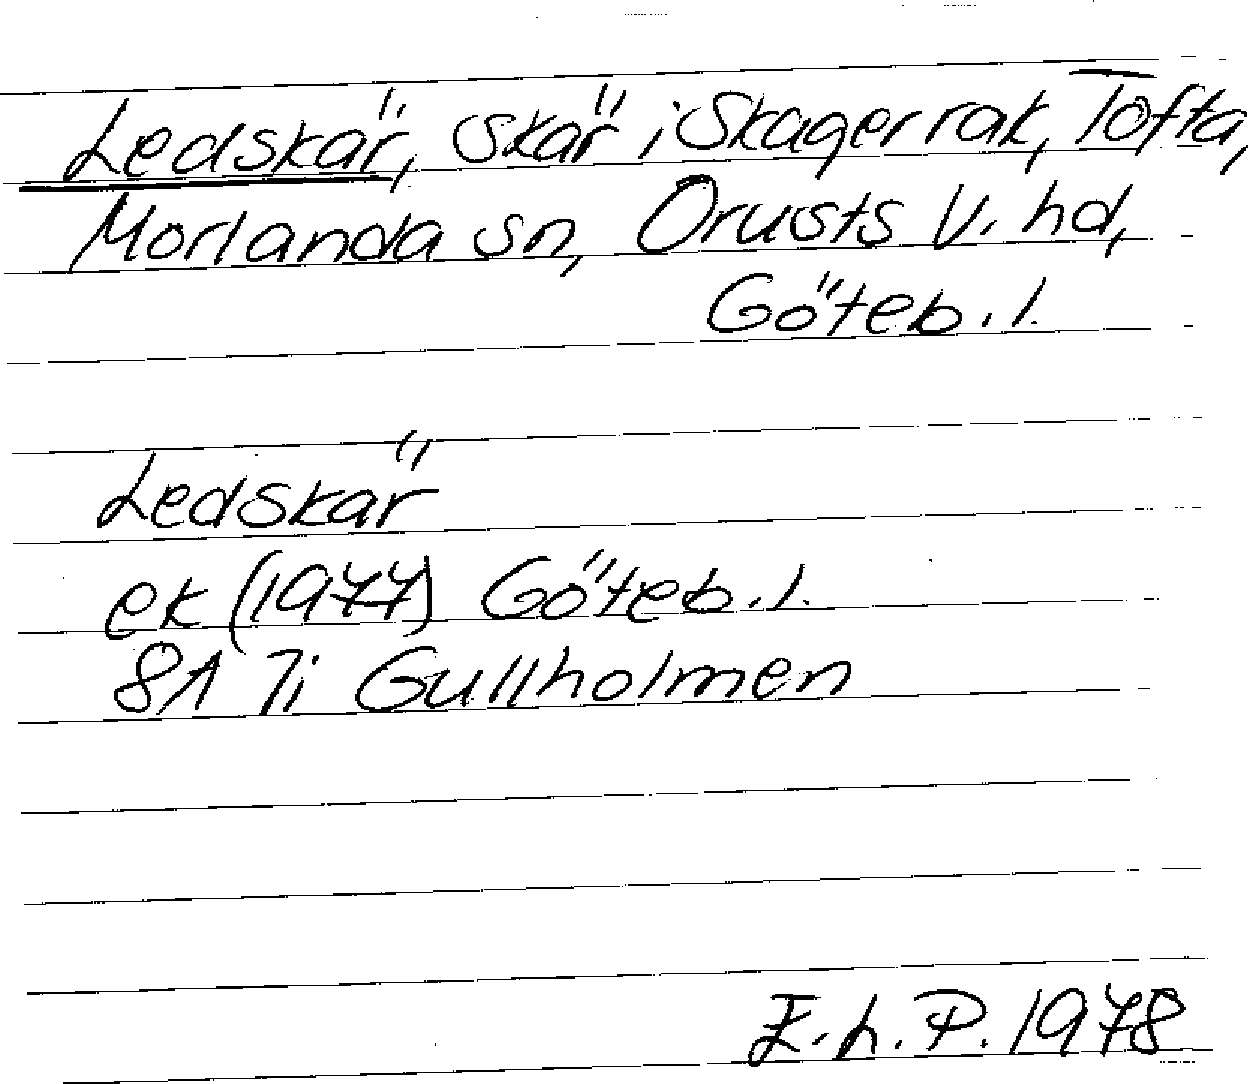 Ledskär, skär i Skagerrak, Tofta,
Morlanda sn, Orusts V. hd,
Göteb. l.
Ledskär
ek (1977) Göteb. l.
8A 7i Gullholmen
E.L.P. 1978